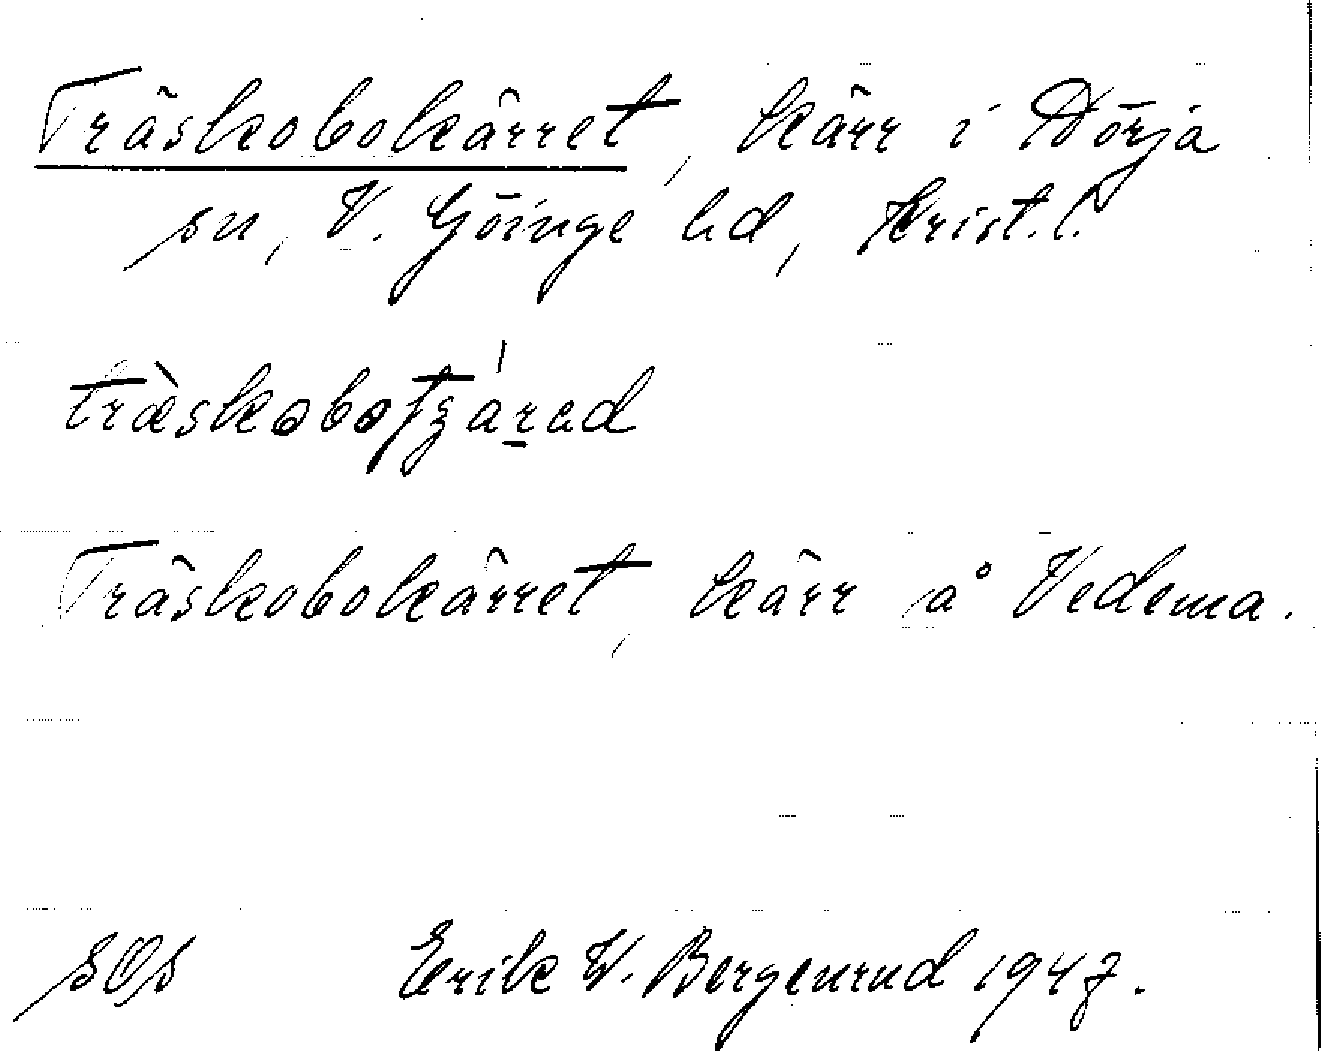 Träskobokärret, kärr i Nörja
sn, V. Göinge hd, Krist. l.
Träskobokärret, kärr å Vedema.
SOS Erik W. Bergenrud 1947.